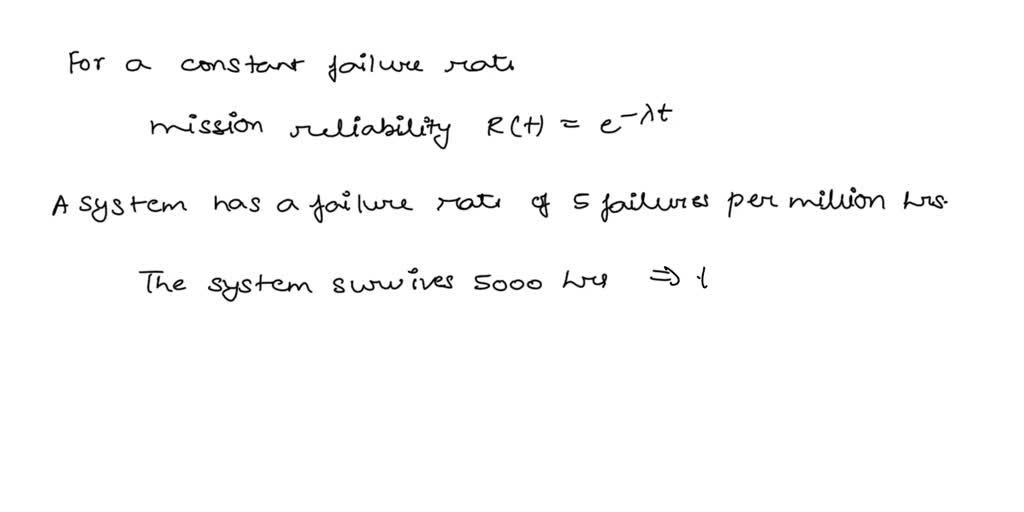 For a constant failure rate
mission reliability R(t) = e^-λt
A system has a failure rate of 5 failures per million hrs.
The system survives 5000 hrs ⇒ t